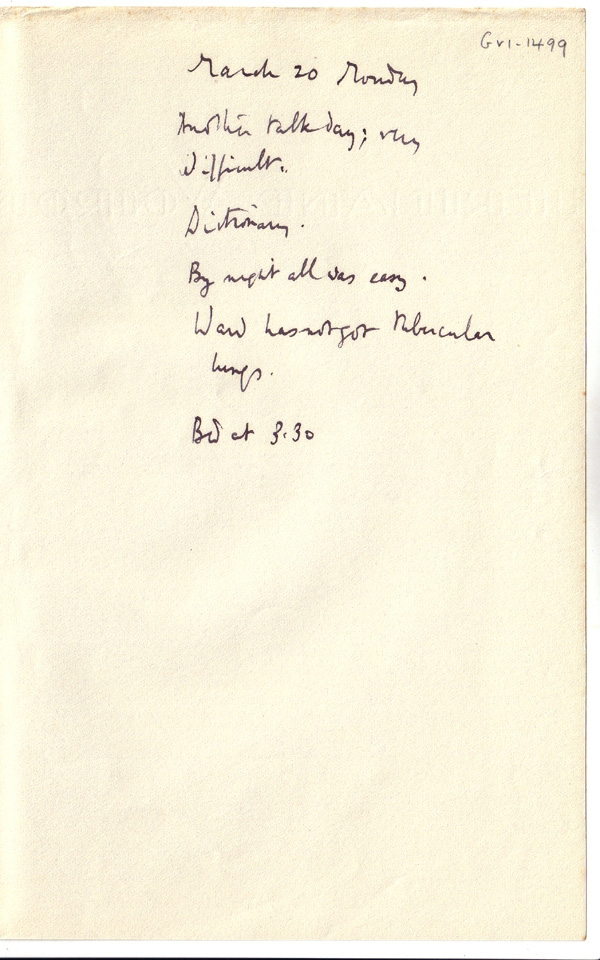 Gv1-1499
March 20 Monday
Another talk day; very
difficult.
Dictionary.
By night all was easy.
Ward has not got tubercular
lungs.
Bed at 3.30